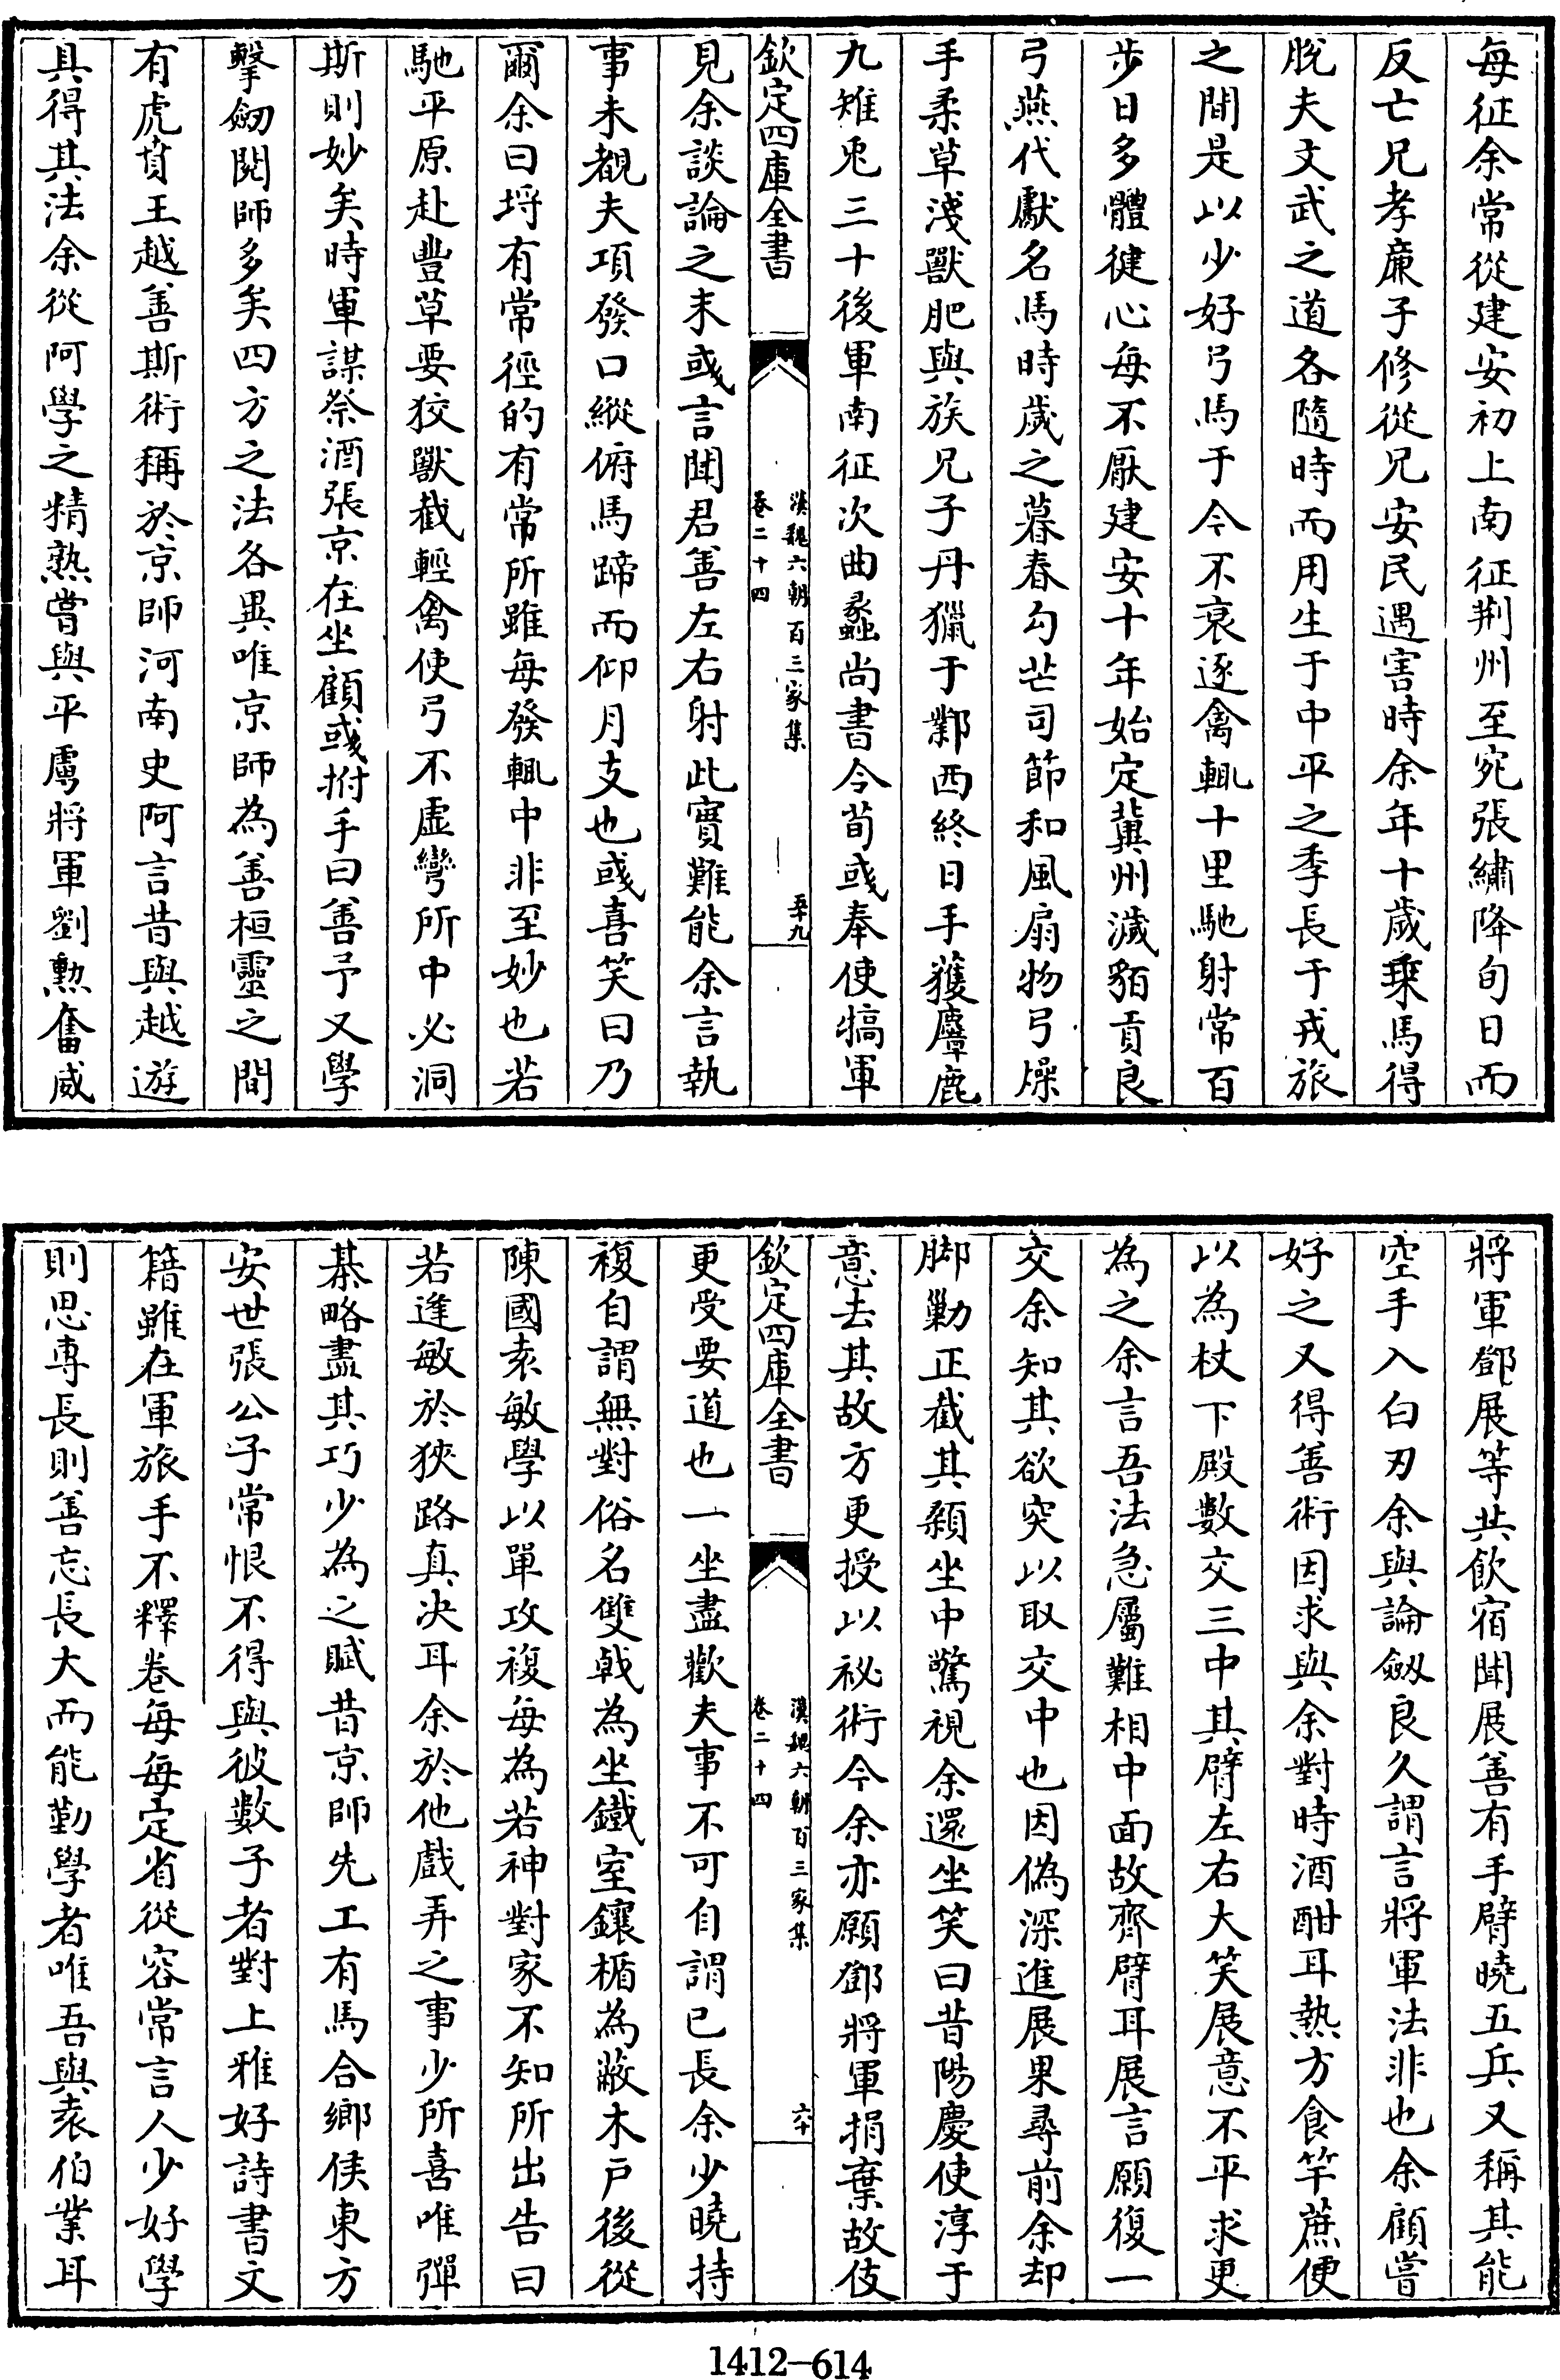 每征余常從建安初上南征荆州至宛張繡降旬日而
反亡兄孝廉子修從兄安民遇害時余年十歲乗馬得
脱夫文武之道各隨時而用生于中平之季長于戎旅
之間是以少好弓馬于今不衰逐禽輒十里馳射常百
步日多體健心每不厭建安十年始定冀州濊貊貢良
弓燕代獻名馬時歲之暮春勾芒司節和風扇物弓燥
手柔草淺獸肥與族兄子丹獵于鄴西終日手獲麞鹿
九雉兎三十後軍南征次曲蠡尚書令荀彧奉使犒軍
欽定四庫全書
漢魏六朝百三家集
卷二十四
五十九
見余談論之末彧言聞君善左右射此實難能余言執
事未覩夫項發口縱俯馬蹄而仰月支也彧喜笑曰乃
爾余曰埒有常徑的有常所雖每發輒中非至妙也若
馳平原赴豐草要狡獸截輕禽使弓不虛彎所中必洞
斯則妙矣時軍謀祭酒張京在坐顧彧拊手曰善予又學
擊劒閱師多矣四方之法各異唯京師為善桓靈之間
有虎賁王越善斯術稱於京師河南史阿言昔與越遊
具得其法余從阿學之精熟嘗與平虜將軍劉勲奮威
將軍鄧展等共飲宿聞展善有手臂曉五兵又稱其能
空手入白刃余與論劒良久謂言將軍法非也余顧嘗
好之又得善術因求與余對時酒酣耳熱方食竿蔗便
以為杖下殿數交三中其臂左右大笑展意不平求更
為之余言吾法急屬難相中面故齊臂耳展言願復一
交余知其欲突以取交中也因偽深進展果尋前余却
脚勦正截其顙坐中驚視余還坐笑曰昔陽慶使淳于
意去其故方更授以祕術今余亦願鄧將軍捐棄故伎
欽定四庫全書
漢魏六朝百三家集
卷二十四
六十
更受要道也一坐盡歡夫事不可自謂已長余少曉持
複自謂無對俗名雙戟為坐鐵室鑲楯為蔽木户後從
陳國袁敏學以單攻複每為若神對家不知所出告曰
若逢敏於狹路真决耳余於他戲弄之事少所喜唯彈
棊略盡其巧少為之賦昔京師先工有馬合鄉侯東方
安世張公子常恨不得與彼數子者對上雅好詩書文
籍雖在軍旅手不釋卷每每定省從容常言人少好學
則思專長則善忘長大而能勤學者唯吾與袁伯業耳
1412-614